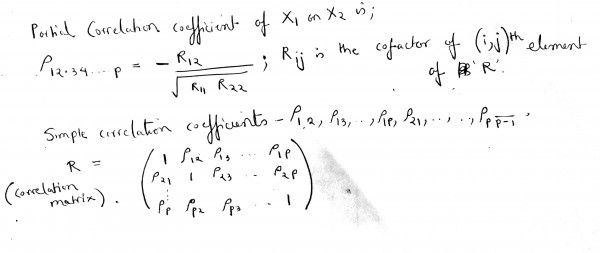 Partial Correlation coefficient of X₁ on X₂ is;
ρ₁₂.₃₄...p = - R₁₂ / √(R₁₁ R₂₂) ; Rᵢⱼ is the cofactor of (i,j)ᵗʰ element
of 'R'.
Simple correlation coefficients - ρ₁,₂, ρ₁₃, .., ρ₁p, ρ₂₁, .., .., ρp p-1.
R = ( 1 ρ₁₂ ρ₁₃ ... ρ₁p
(correlation matrix). ρ₂₁ 1 ρ₂₃ .. ρ₂p
⋮
ρp ρp₂ ρp₃ .. 1 )